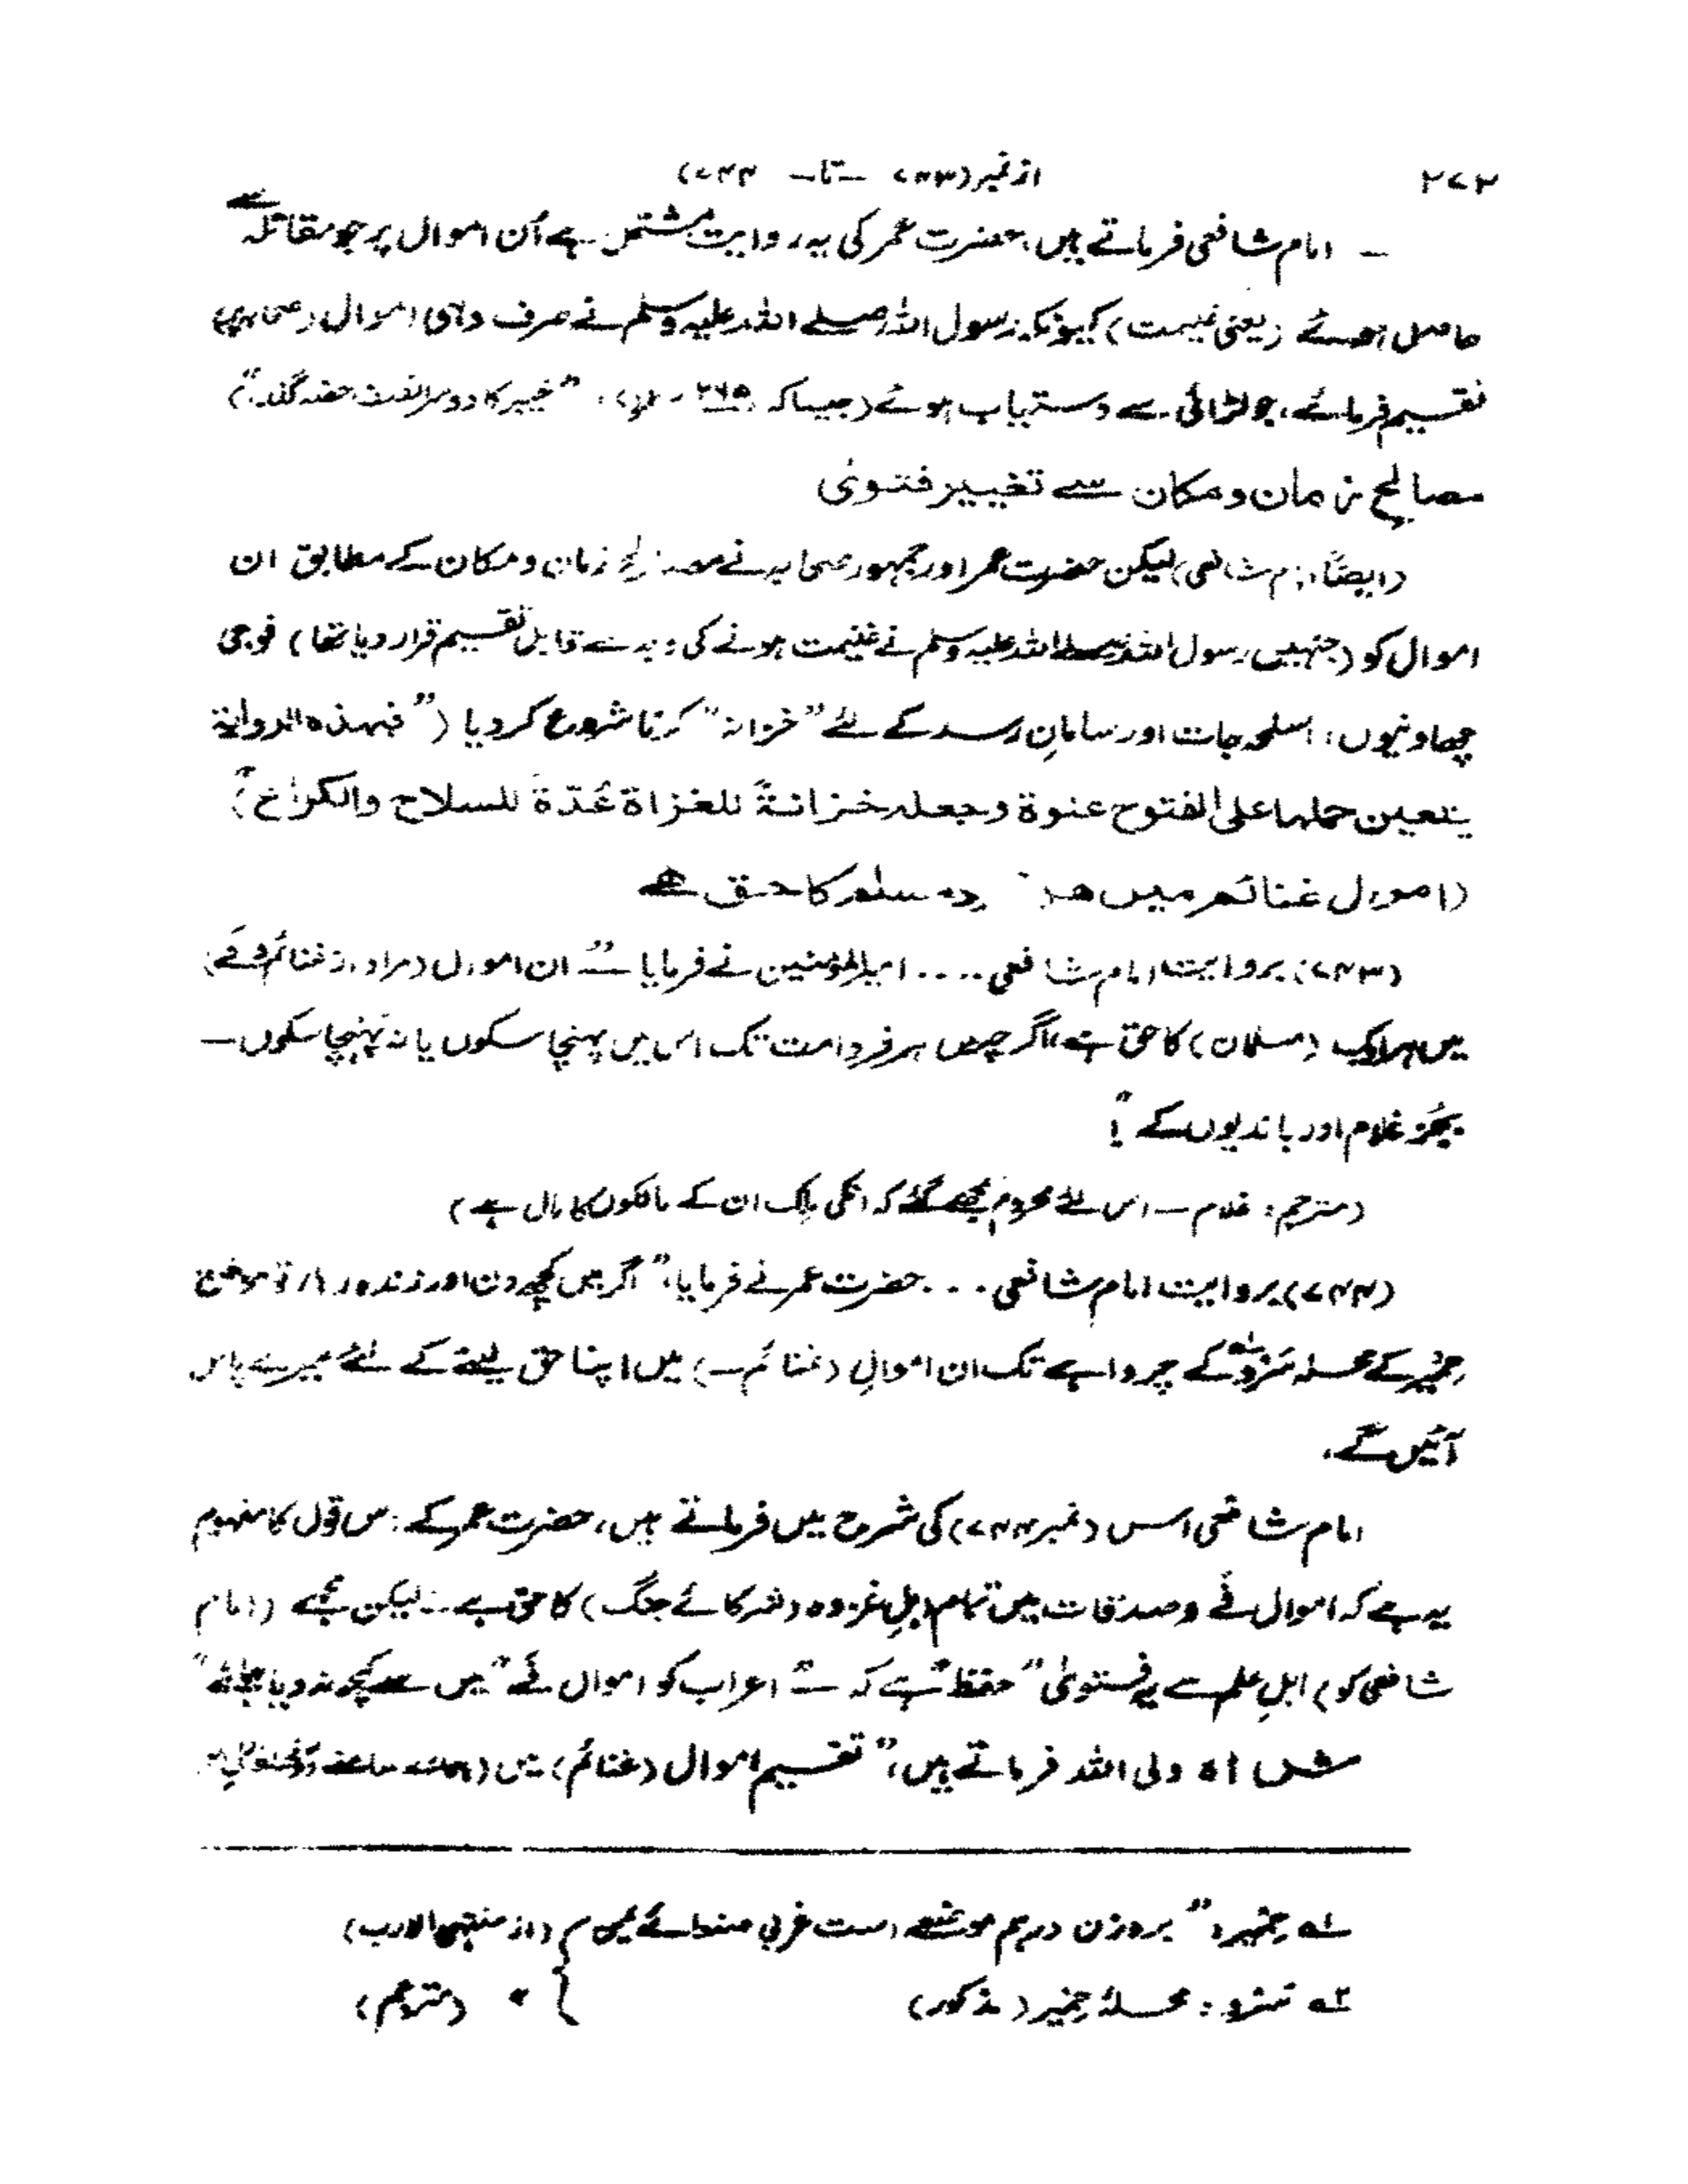 ۲۷۲
از نمبر (۷۴۳ — تا — ۷۴۴)
— امام شافعی فرماتے ہیں، حضرت عمر کی یہ روایت مشتمل ہے اُن اموال پر جو مقاتلہ سے
حاصل ہوئے (یعنی غنیمت) کیونکہ رسول اللہ صلے اللہ علیہ وسلم نے صرف وہی اموال
تقسیم فرمائے، جو لڑائی سے دستیاب ہوئے (جیسا کہ "خیبر کا دوسرا نصف حصہ"
مصالح زمان و مکان سے تغییر فتویٰ
(ایضاً، امام شافعی) لیکن حضرت عمر اور جمہور صحابہ نے مصالح زمان و مکان کے مطابق ان
اموال کو (جنہیں رسول اللہ صلے اللہ علیہ وسلم نے غنیمت ہونے کی وجہ سے قابل تقسیم قرار دیا تھا) فوجی
چھاونیوں، اسلحہ جات اور سامانِ رسد کے لئے "خزانہ" کرنا شروع کر دیا ("فہذہ الروایۃ
یتعین حملہا علی الفتوح عنوۃ وجعلہ خزانۃً للغزاۃ عُدّۃ للسلاح والکراع")
(اموال غنائم میں ہر کا حق ہے
(۷۴۳) بروایت امام شافعی .... امیر المؤمنین نے فرمایا — "ان اموال (مراد از غنائم وفے)
میں ہر ایک (مسلمان) کا حق ہے، اگرچہ میں ہر فردِ امت تک اس میں پہنچا سکوں یا نہ پہنچا سکوں —
بجُز غلام اور باندیوں کے"!
(مترجم: غلام — اس لئے محروم سمجھے گئے کہ انکی مِلک ان کے مالکوں کا مال ہے)
(۷۴۴) بروایت امام شافعی ... حضرت عمر نے فرمایا، "اگر میں کچھ دن اور زندہ رہا، تو موضع
حِمْیَر کے محلہ سَرْو کے چرواہے تک ان اموالِ (غنائم —) میں اپنا حق لینے کے لئے میرے پاس
آئیں گے،
امام شافعی اس (نمبر ۷۴۴) کی شرح میں فرماتے ہیں، حضرت عمر کے اس قول کا مفہوم
یہ ہے کہ اموال فے وصدقات میں تمام اہلِ غزوہ (شرکائے جنگ) کا حق ہے — لیکن مجھے (امام
شافعی کو) اہلِ علم سے یہ فتویٰ "حفظ" ہے کہ — "اعراب کو اموال فے" میں سے کچھ نہ دیا جائے"
شاہ ولی اللہ فرماتے ہیں، "تقسیم اموال (غنائم) میں
۱؎ حِمْیَر: "بروزن درہم موضعے است غربی صنعائے یمن (از منتہی الارب)
۲؎ سَرو: محلۂ حِمْیَر (مذکور) } " (مترجم)